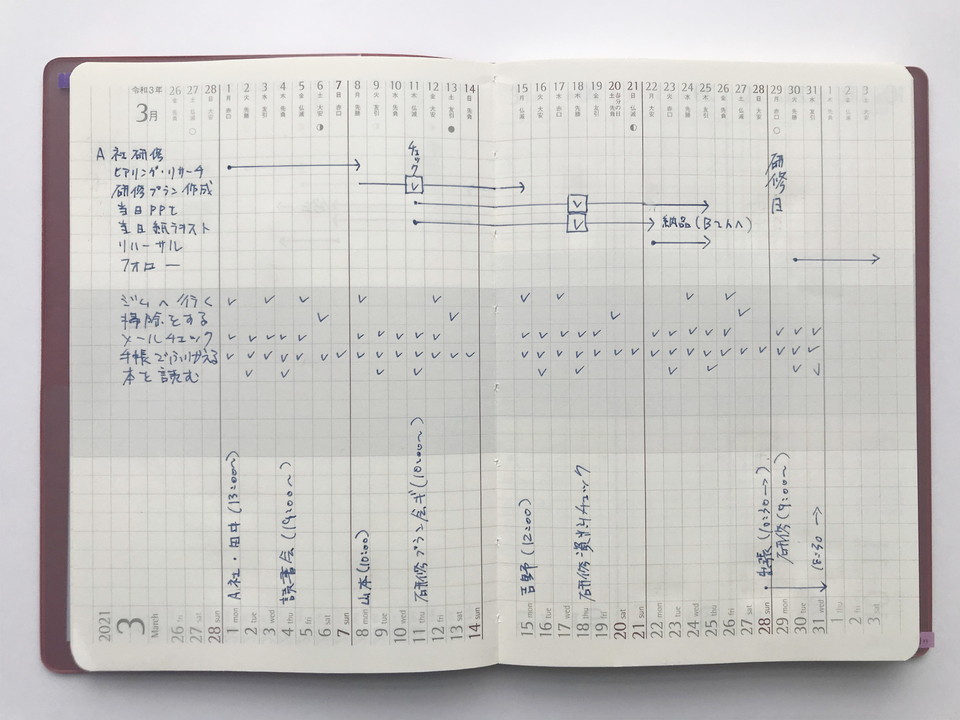 令和3年
3月
26 27 28 1 2 3 4 5 6 7 8 9 10 11 12 13 14 15 16 17 18 19 20 21 22 23 24 25 26 27 28 29 30 31 1 2 3
金 土 日 月 火 水 木 金 土 日 月 火 水 木 金 土 日 月 火 水 木 金 土 日 月 火 水 木 金 土 日 月 火 水
春分の日
チェック
研修日
A社研修
ヒアリング・リサーチ
研修プラン作成
当日PPT
当日紙テキスト
納品(Bさんへ)
リハーサル
フォロー
ジムへ行く
掃除をする
メールチェック
手帳でふりかえる
本を読む
A社・田中(13:00〜)
読書会(19:00〜)
山本(10:00)
研修プラン会ギ(10:00〜)
吉野(12:00)
研修資料チェック
出張(10:30→)
研修(9:00〜)
18:30→
2021
3
March
26 fri 27 sat 28 sun 1 mon 2 tue 3 wed 4 thu 5 fri 6 sat 7 sun 8 mon 9 tue 10 wed 11 thu 12 fri 13 sat 14 sun 15 mon 16 tue 17 wed 18 thu 19 fri 20 sat 21 sun 22 mon 23 tue 24 wed 25 thu 26 fri 27 sat 28 sun 29 mon 30 tue 31 wed 1 2 3